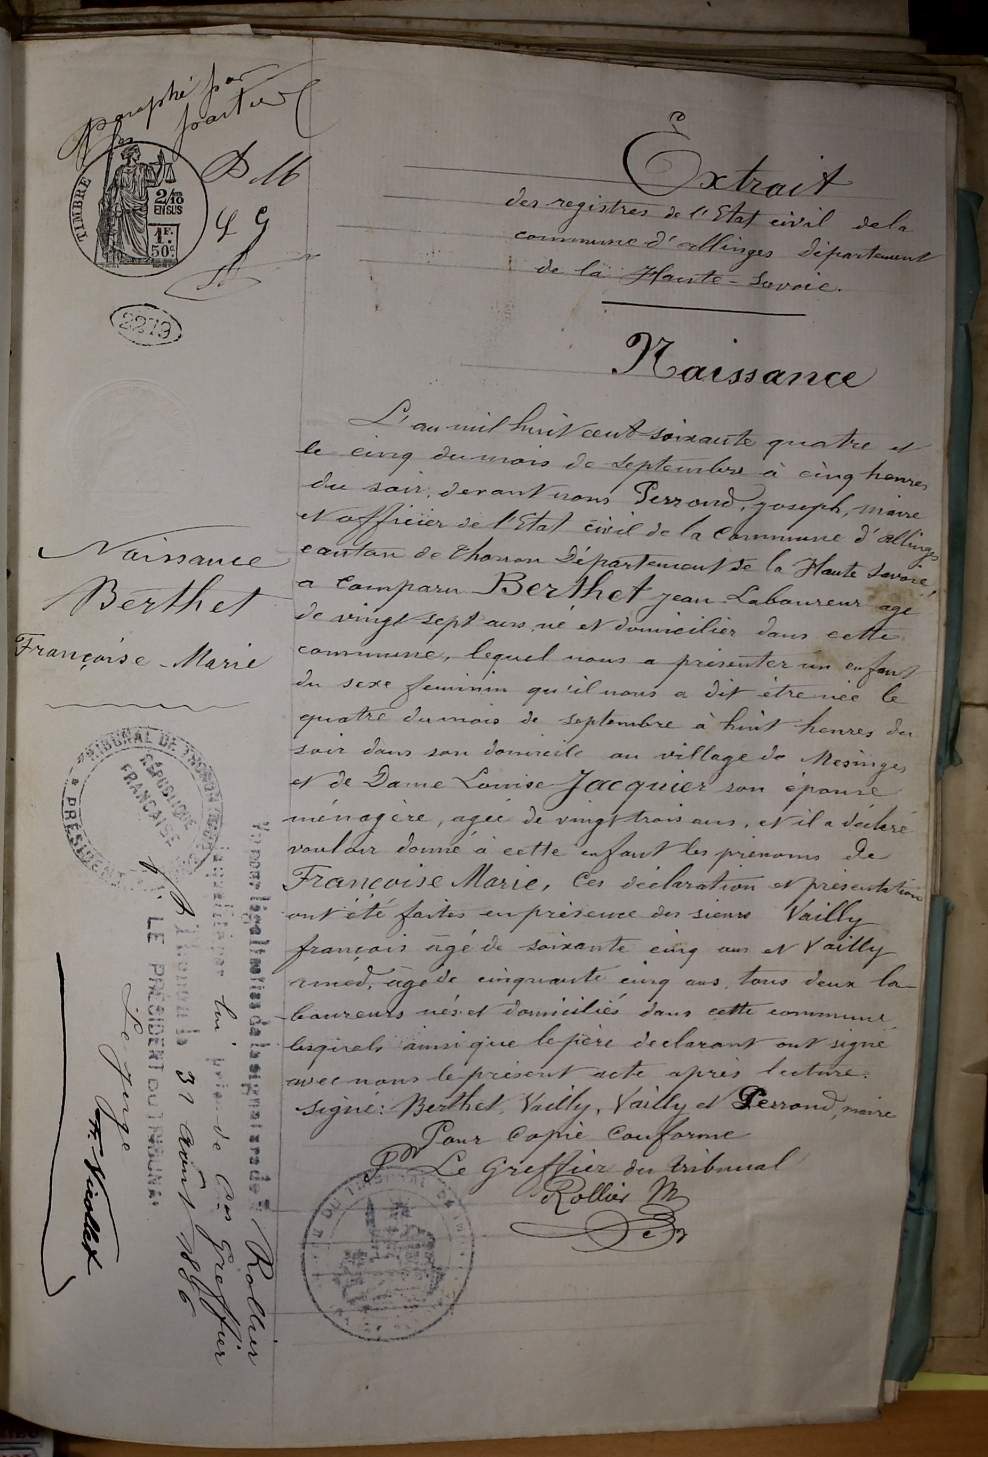 paraphé par
TIMBRE
2/10
EN SUS
1F.
50c
2279
Extrait
des registres de l'Etat civil de la
commune d'allinges département
de la Haute-Savoie.
Naissance
L'an mil huit cent soixante quatre et
le cinq du mois de septembre à cinq heures
du soir, devant nous Perroud, joseph, maire
et officier de l'Etat civil de la commune d'allinges
canton de Thonon Département de la Haute Savoie
a comparu Berthet jean Laboureur agé
de vingt sept ans né et domicilier dans cette
commune, lequel nous a présenter un enfant
du sexe feminin qu'il nous a dit être née le
quatre du mois de septembre à huit heures du
soir dans son domicile au village de Mesinges
et de Dame Louise Jacquier son épouse
ménagère, agée de vingt trois ans, et il a déclaré
vouloir donné à cette enfant les prénoms de
Françoise Marie, Ces déclaration et présentation
ont été faites en présence des sieurs Vailly
françois âgé de soixante cinq ans et Vailly
âgé de cinquante cinq ans, tous deux la-
boureurs nés et domiciliés dans cette commune
lesquels ainsi que le père declarant ont signé
avec nous le présent acte après lecture.
Signé: Berthet, Vailly, Vailly et Perroud, maire
Pour Copie Conforme
Le Greffier du tribunal
Rollier
Naissance
Berthet
Françoise-Marie
TRIBUNAL DE THONON
PRÉSIDENT
RÉPUBLIQUE
FRANÇAISE
Vu pour légalisation de la signature de M. Rollier
Greffier
31 août 1886
LE PRÉSIDENT DU TRIBUNAL
Le juge
F. Nicollet